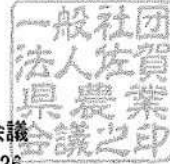 一般社団
法人佐賀
県農業
会議之印
議
26